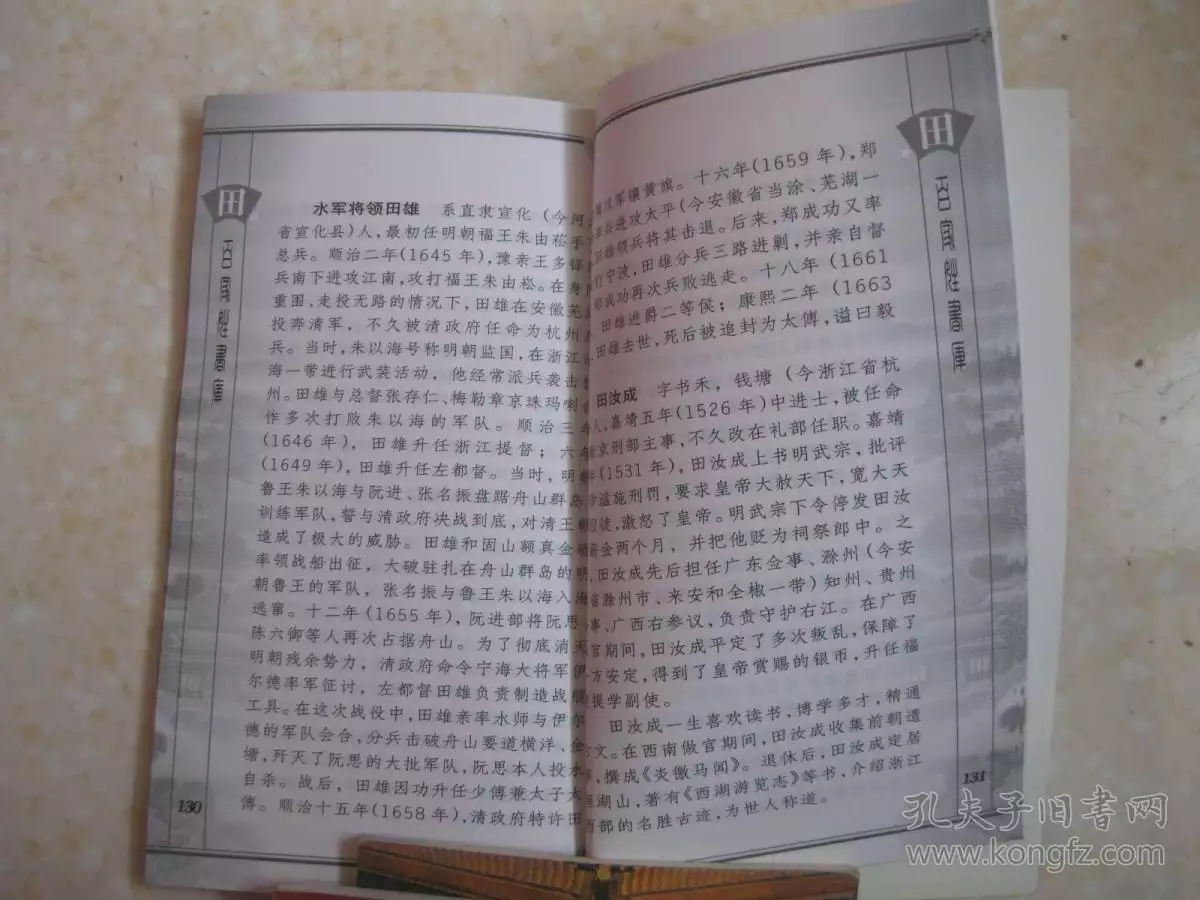 田
百家姓書庫
水军将领田雄 系直隶宣化(今河
省宣化县)人，最初任明朝福王朱由崧手
总兵。顺治二年(1645年)，豫亲王多铎
兵南下进攻江南，攻打福王朱由崧。在身
重围、走投无路的情况下，田雄在安徽芜
投奔清军，不久被清政府任命为杭州
兵。当时，朱以海号称明朝监国，在浙江
海一带进行武装活动，他经常派兵袭击
州。田雄与总督张存仁、梅勒章京珠玛喇
作多次打败朱以海的军队。顺治三
(1646年)，田雄升任浙江提督；六
(1649年)，田雄升任左都督。当时，明
鲁王朱以海与阮进、张名振盘踞舟山群岛
训练军队，誓与清政府决战到底，对清王
造成了极大的威胁。田雄和固山额真金
率领战船出征，大破驻扎在舟山群岛的明
朝鲁王的军队，张名振与鲁王朱以海入海
逃窜。十二年(1655年)，阮进部将阮思
陈六御等人再次占据舟山。为了彻底消灭
明朝残余势力，清政府命令宁海大将军伊
尔德率军征讨，左都督田雄负责制造战船
工具。在这次战役中，田雄亲率水师与伊尔
德的军队会合，分兵击破舟山要道横洋、金
塘，歼灭了阮思的大批军队，阮思本人投水
自杀。战后，田雄因功升任少傅兼太子太
傅。顺治十五年(1658年)，清政府特许田
130
田
百家姓書庫
汉军镶黄旗。十六年(1659年)，郑
兵进攻太平(今安徽省当涂、芜湖一
田雄领兵将其击退。后来，郑成功又率
打宁波，田雄分兵三路进剿，并亲自督
郑成功再次兵败逃走。十八年(1661
田雄进爵二等侯；康熙二年(1663
田雄去世，死后被追封为太傅，谥曰毅
田汝成 字书禾，钱塘(今浙江省杭
人，嘉靖五年(1526年)中进士，被任命
南京刑部主事，不久改在礼部任职。嘉靖
年(1531年)，田汝成上书明武宗，批评
滥施刑罚，要求皇帝大赦天下，宽大天
囚徒，激怒了皇帝。明武宗下令停发田汝
薪金两个月，并把他贬为祠祭郎中。之
田汝成先后担任广东佥事、滁州(今安
省滁州市、来安和全椒一带)知州、贵州
事、广西右参议，负责守护右江。在广西
官期间，田汝成平定了多次叛乱，保障了
方安定，得到了皇帝赏赐的银币，升任福
提学副使。
田汝成一生喜欢读书，博学多才，精通
文。在西南做官期间，田汝成收集前朝遗
，撰成《炎徼马闻》。退休后，田汝成定居
湖山，著有《西湖游览志》等书，介绍浙江
西部的名胜古迹，为世人称道。
131
孔夫子旧书网
www.kongfz.com